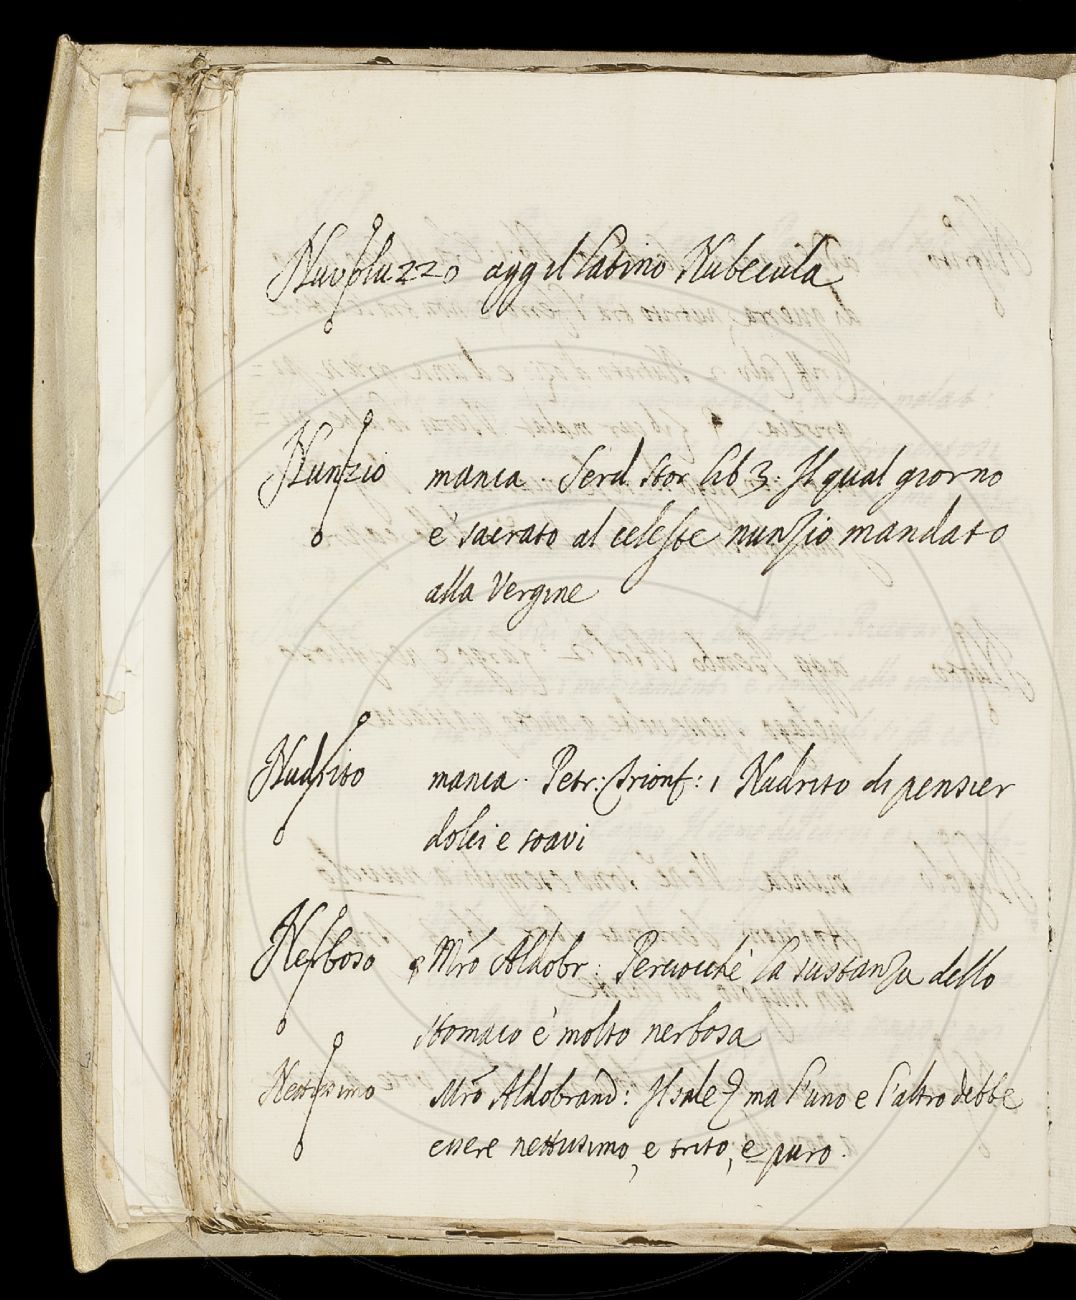 Nuvoluzzo agg il latino Nubecula
Nunzio manca. Serd. Stor lib 3. Il qual giorno
è sacrato al celeste nunzio mandato
alla Vergine
Nudrito manca. Petr: Trionf: 1 Nudrito di pensier
dolci e soavi
Nerboso Mrõ Aldobr: Perciocchè la sustanza dello
stomaco è molto nerbosa
Nettissimo Mrõ Aldobrand: Il sale ma l'uno e l'altro debbe
essere nettissimo, e trito, e puro.